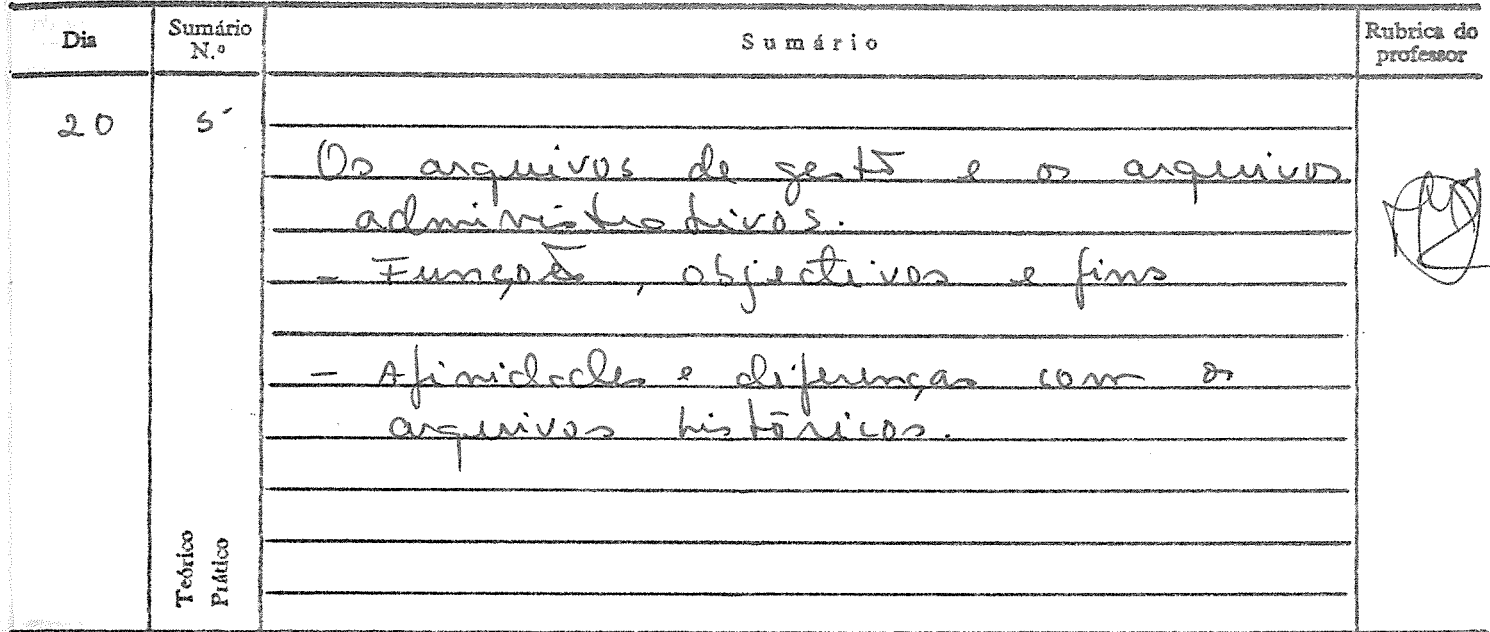 Dia Sumário N.º Sumário Rubrica do professor
20 5
Os arquivos de gestão e os arquivos
administrativos.
- Funções, objectivos e fins
- Afinidades e diferenças com os
arquivos históricos.
Teórico
Prático